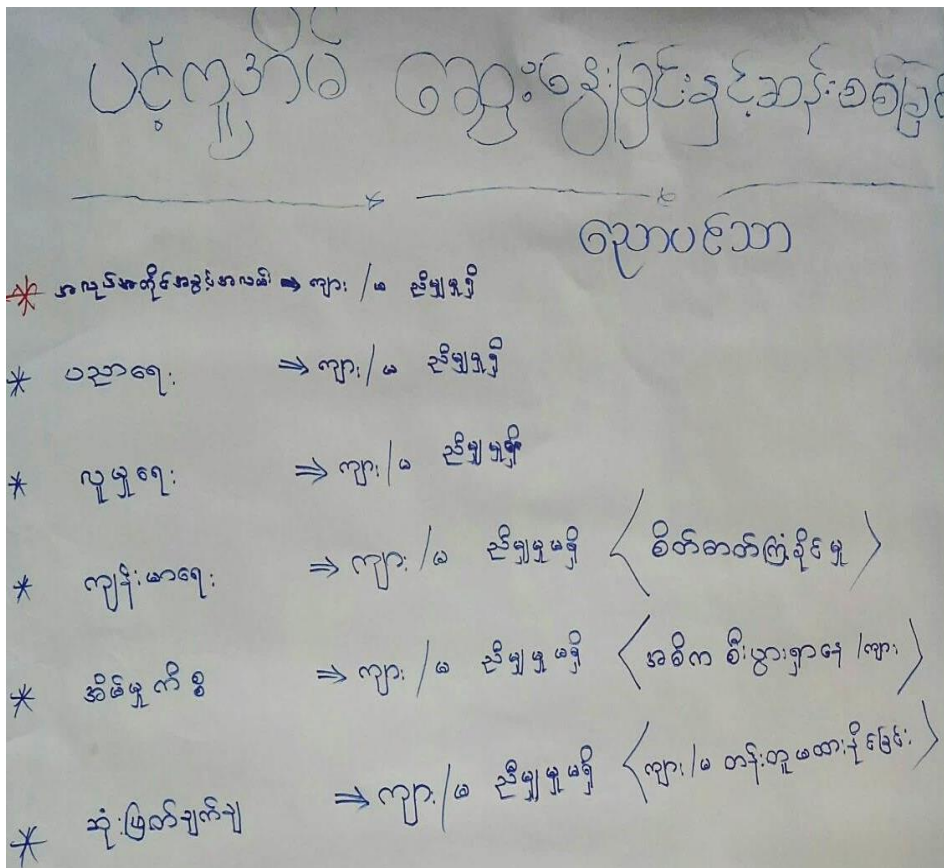 ပင့်ကူအိမ် ဆွေးနွေးခြင်းနှင့်ဆန်းစစ်ခြင်း
ညောပင်သာ
* အလုပ်အကိုင်အခွင့်အလမ်း ⇒ ကျား / မ ညီမျှမှုရှိ
* ပညာရေး ⇒ ကျား / မ ညီမျှမှုရှိ
* လူမှုရေး ⇒ ကျား / မ ညီမျှမှုရှိ
* ကျန်းမာရေး ⇒ ကျား / မ ညီမျှမှုမရှိ < စိတ်ဓာတ်ကြံ့ခိုင်မှု >
* အိမ်မှုကိစ္စ ⇒ ကျား / မ ညီမျှမှုမရှိ < အဓိက စီးပွားရှာနေ / ကျား >
* ဆုံးဖြတ်ချက်ချ ⇒ ကျား / မ ညီမျှမှုမရှိ < ကျား / မ တန်းတူမထားနိုင်ခြင်း >